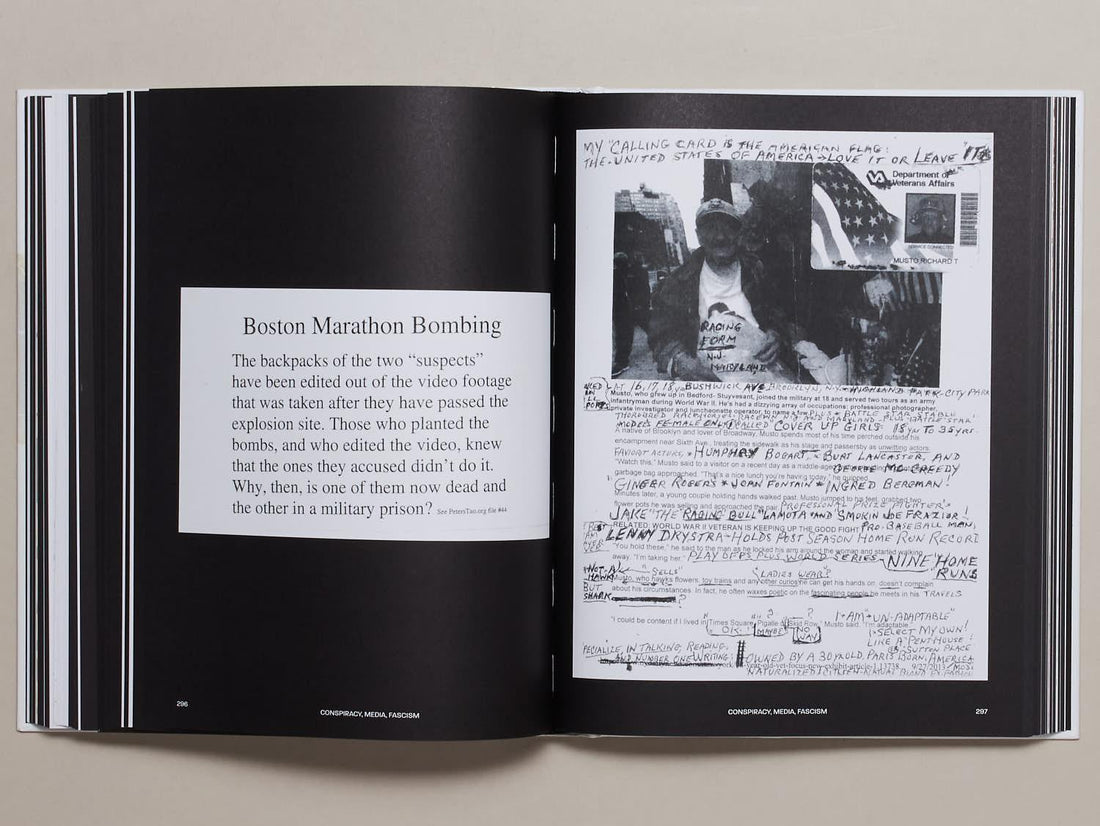 Boston Marathon Bombing
The backpacks of the two “suspects”
have been edited out of the video footage
that was taken after they have passed the
explosion site. Those who planted the
bombs, and who edited the video, knew
that the ones they accused didn’t do it.
Why, then, is one of them now dead and
the other in a military prison? See PetersTao.org file #44
296
CONSPIRACY, MEDIA, FASCISM
MY "CALLING CARD IS THE AMERICAN FLAG:
THE UNITED STATES OF AMERICA → LOVE IT OR LEAVE IT
VA Department of
Veterans Affairs
SERVICE CONNECTED
MUSTO RICHARD T
RACING
FORM
N.J.
AT 16, 17, 18 BUSHWICK AVE BROOKLYN, N.Y. HIGHLAND PARK-CITY PARK
Musto, who grew up in Bedford- Stuyvesant, joined the military at 18 and served two tours as an army
infantryman during World War II. He's had a dizzying array of occupations: professional photographer,
private investigator and luncheonette operator, to name a few PLUS BATTLE STAR STABLE
MODELS FEMALE ONLY CALLED COVER UP GIRLS 18 YR TO 35 YRS.
A native of Brooklyn and lover of Broadway, Musto spends most of his time perched outside his
encampment near Sixth Ave., treating the sidewalk as his stage and passersby as unwitting actors.
FAVORIT ACTORS, HUMPHRY BOGART, BURT LANCASTER, AND
"Watch this," Musto said to a visitor on a recent day as a middle-age
garbage bag approached. "That's a nice lunch you're having today," he quipped.
GINGER ROGER'S * JOAN FONTAIN * INGRED BERGMAN!
Minutes later, a young couple holding hands walked past. Musto jumped to his feet, grabbed two
flower pots he was selling and approached the pair. PROFESSIONAL PRIZE FIGHTER'S
JAKE "THE RAGING BULL" LAMOTA AND SMOKIN JOE FRAZIOR!
RELATED: WORLD WAR II VETERAN IS KEEPING UP THE GOOD FIGHT PRO. BASEBALL MAN,
LENNY DRYSTRA-HOLDS POST SEASON HOME RUN RECORD
"You hold these," he said to the man as he locked his arm around the woman and started walking
away. "I'm taking her." PLAY OFFS PLUS WORLD SERIES NINE HOME
RUNS
"NOT A HAWK BUT SHARK
"SELLS" "LADIES WEAR"
Musto, who hawks flowers, toy trains and any other curios he can get his hands on, doesn't complain
about his circumstances. In fact, he often waxes poetic on the fascinating people he meets in his TRAVELS
"I could be content if I lived in Times Square, Pigalle or Skid Row," Musto said. "I'm adaptable."
I AM "UN-ADAPTABLE"
OK. MAYBE NO WAY
I SELECT MY OWN!
LIKE A PENTHOUSE!
SUTTEN PLACE
IN TALKING, READING,
AND NUMBER ONE WRITING:
OWNED BY A 30 YR OLD, PARIS BORN, AMERICA
9/27/2013
CONSPIRACY, MEDIA, FASCISM
297